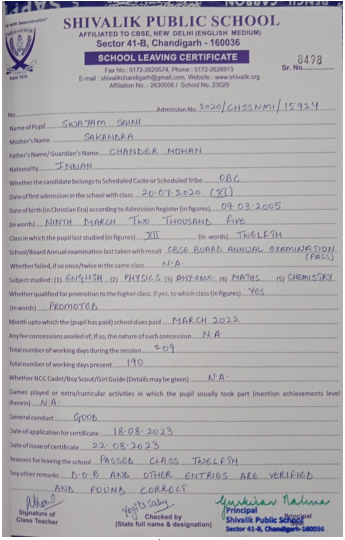 SHIVALIK PUBLIC SCHOOL
AFFILIATED TO CBSE, NEW DELHI (ENGLISH MEDIUM)
Sector 41-B, Chandigarh - 160036
SCHOOL LEAVING CERTIFICATE
Fax No.: 0172-2629574, Phone : 0172-2626913
Sr. No. 8498
E-mail : shivalikchandigarh@gmail.com, Website : www.shivalik.org
Affiliation No. - 2630006 / School No. 23029
No. Admission No. 2020/CHSSNMI/15924
Name of Pupil SWAYAM SAINI
Mother's Name SAKANDRA
Father's Name/Guardian's Name CHANDER MOHAN
Nationality INDIAN
Whether the candidate belongs to Scheduled Caste or Scheduled Tribe OBC
Date of first admission in the school with class 20-07-2020 (XI)
Date of birth (in Christian Era) according to Admission Register (in figures) 09-03-2005
(in words) NINTH MARCH TWO THOUSAND FIVE
Class in which the pupil last studied (in figures) XII (in words) TWELFTH
School/Board Annual examination last taken with result CBSE BOARD ANNUAL EXAMINATION (PASS)
Whether failed, if so once/twice in the same class N.A
Subject studied : (1) ENGLISH (2) PHYSICS (3) (4) MATHS (5) CHEMISTRY
Whether qualified for promotion to the higher class. If yes, to which class (in figures) YES
(in words) PROMOTED
Month upto which the (pupil has paid) school dues paid MARCH 2022
Any fee concessions availed of; if so, the nature of such concession N.A
Total number of working days during the session 209
Total number of working days present 190
Whether NCC Cadet/Boy Scout/Girl Guide (Details may be given) N.A.
Games played or extra/curricular activities in which the pupil usually took part (mention achievements level
therein) N.A.
General conduct GOOD
Date of application for certificate 18.08.2023
Date of issue of certificate 22.08.2023
Reasons for leaving the school PASSED CLASS TWELFTH
Any other remarks D.O.B AND OTHER ENTRIES ARE VERIFIED
AND FOUND CORRECT
Signature of
Class Teacher
Checked by
(State full name & designation)
Principal
Principal
Shivalik Public School
Sector 41-B, Chandigarh-160036